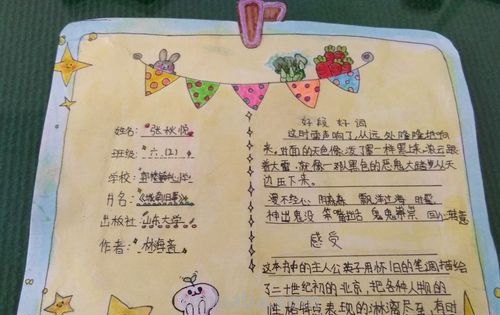 姓名：张秋悦
班级：六.(2)
学校：
书名：《城南旧事》
出版社：山东大学
作者：林海音
好段 好词
这时雷声响了,从远处隆隆地响
来,对面的天色像泼了墨一样黑,浓云跟
着大雷,就像一队黑色的恶鬼大踏步从天
边压下来。
漫不经心 阴森森 飘洋过海
神出鬼没 鬼鬼祟祟
感受
这本书中的主人公英子用怀旧的笔调描绘
了二十世纪初的北京,把各种人物的
性格特点表现的淋漓尽至,有时